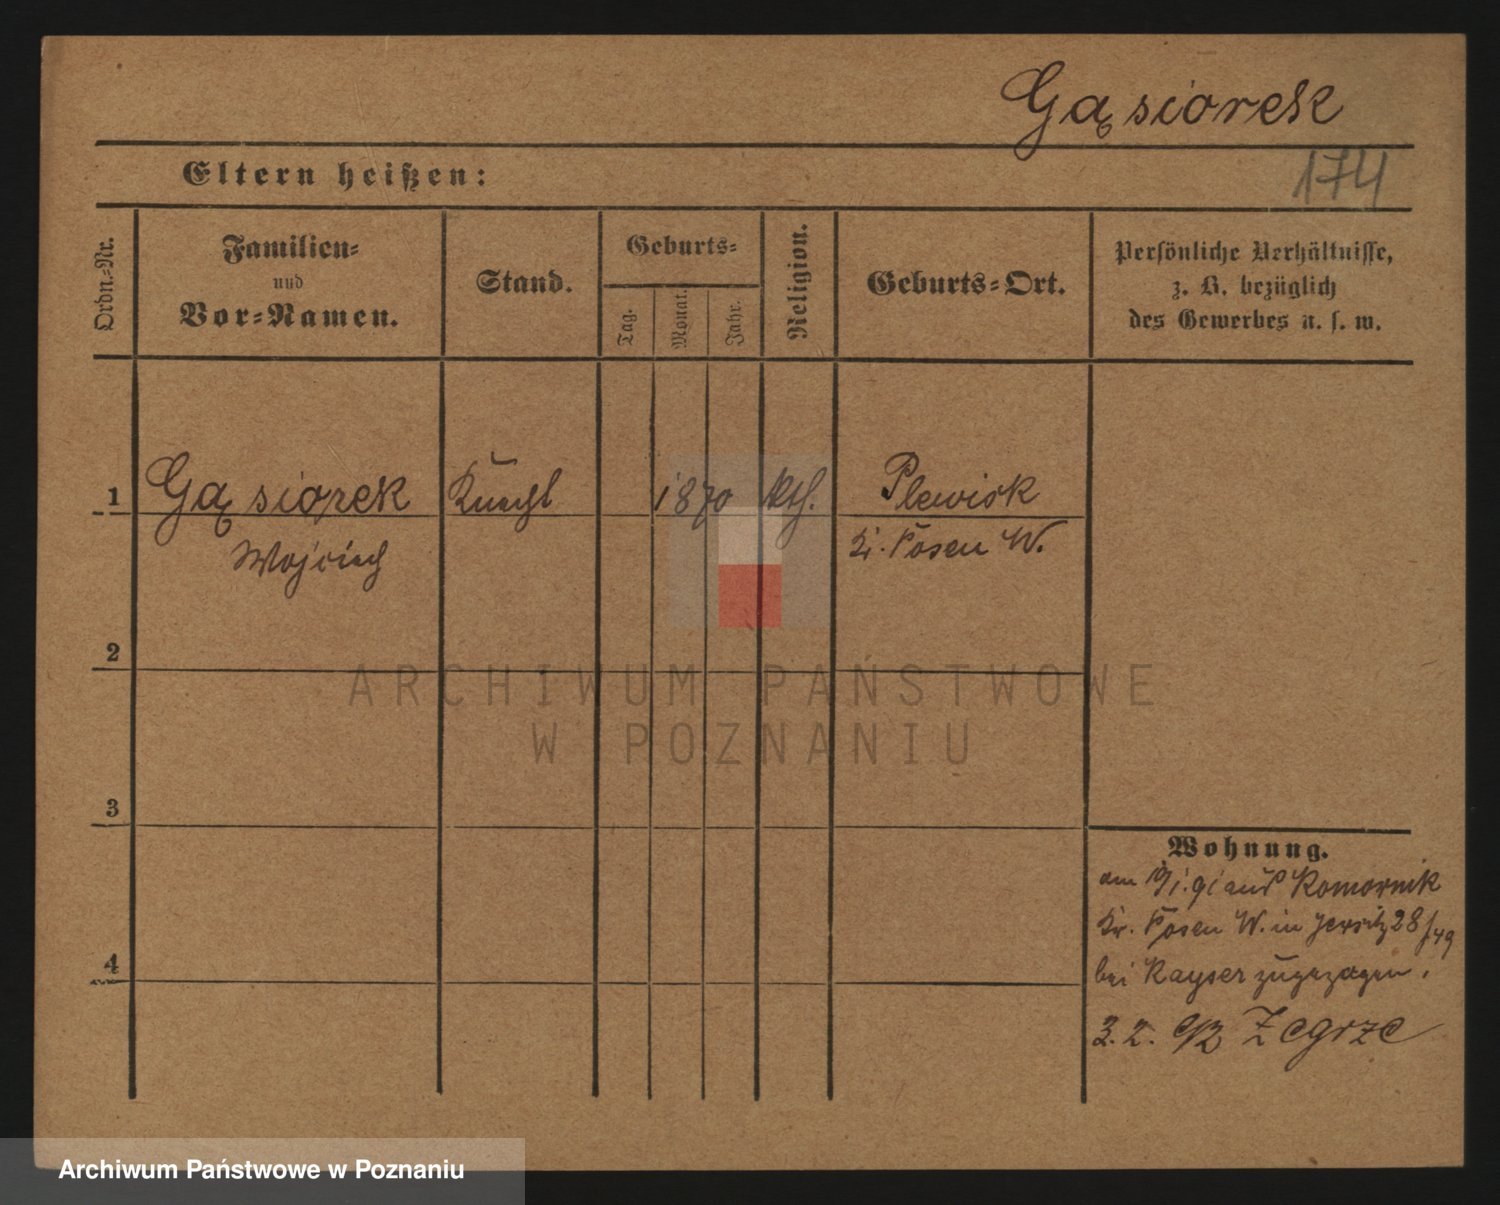 Gąsiorek
174
Eltern heißen:
Ordn.-Nr.
Familien-
und
Vor-Namen.
Stand.
Geburts-
Tag.
Monat.
Jahr.
Religion.
Geburts-Ort.
Persönliche Verhältnisse,
z. B. bezüglich
des Gewerbes u. s. w.
1 Gąsiorek Knecht 1870 kth. Plewisk
Wojciech Kr. Posen W.
2
3
4
Wohnung.
am aus Komornik
Kr. Posen W. in Jersitz 28/49
bei Kayser zugezogen.
3. 2. Zegrze
ARCHIWUM PAŃSTWOWE
W POZNANIU
Archiwum Państwowe w Poznaniu